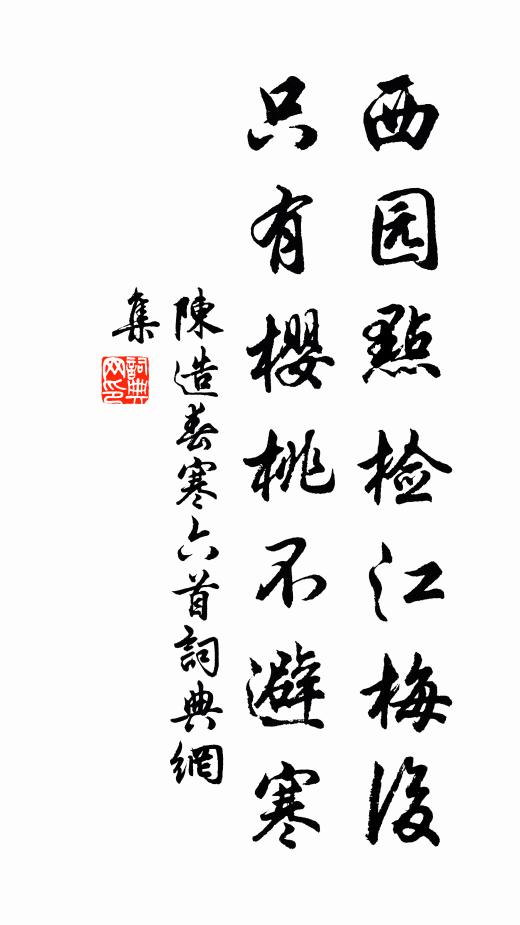 西园點检江梅後
只有櫻桃不避寒
陳造春寒六首詞典網
集
詞典網印